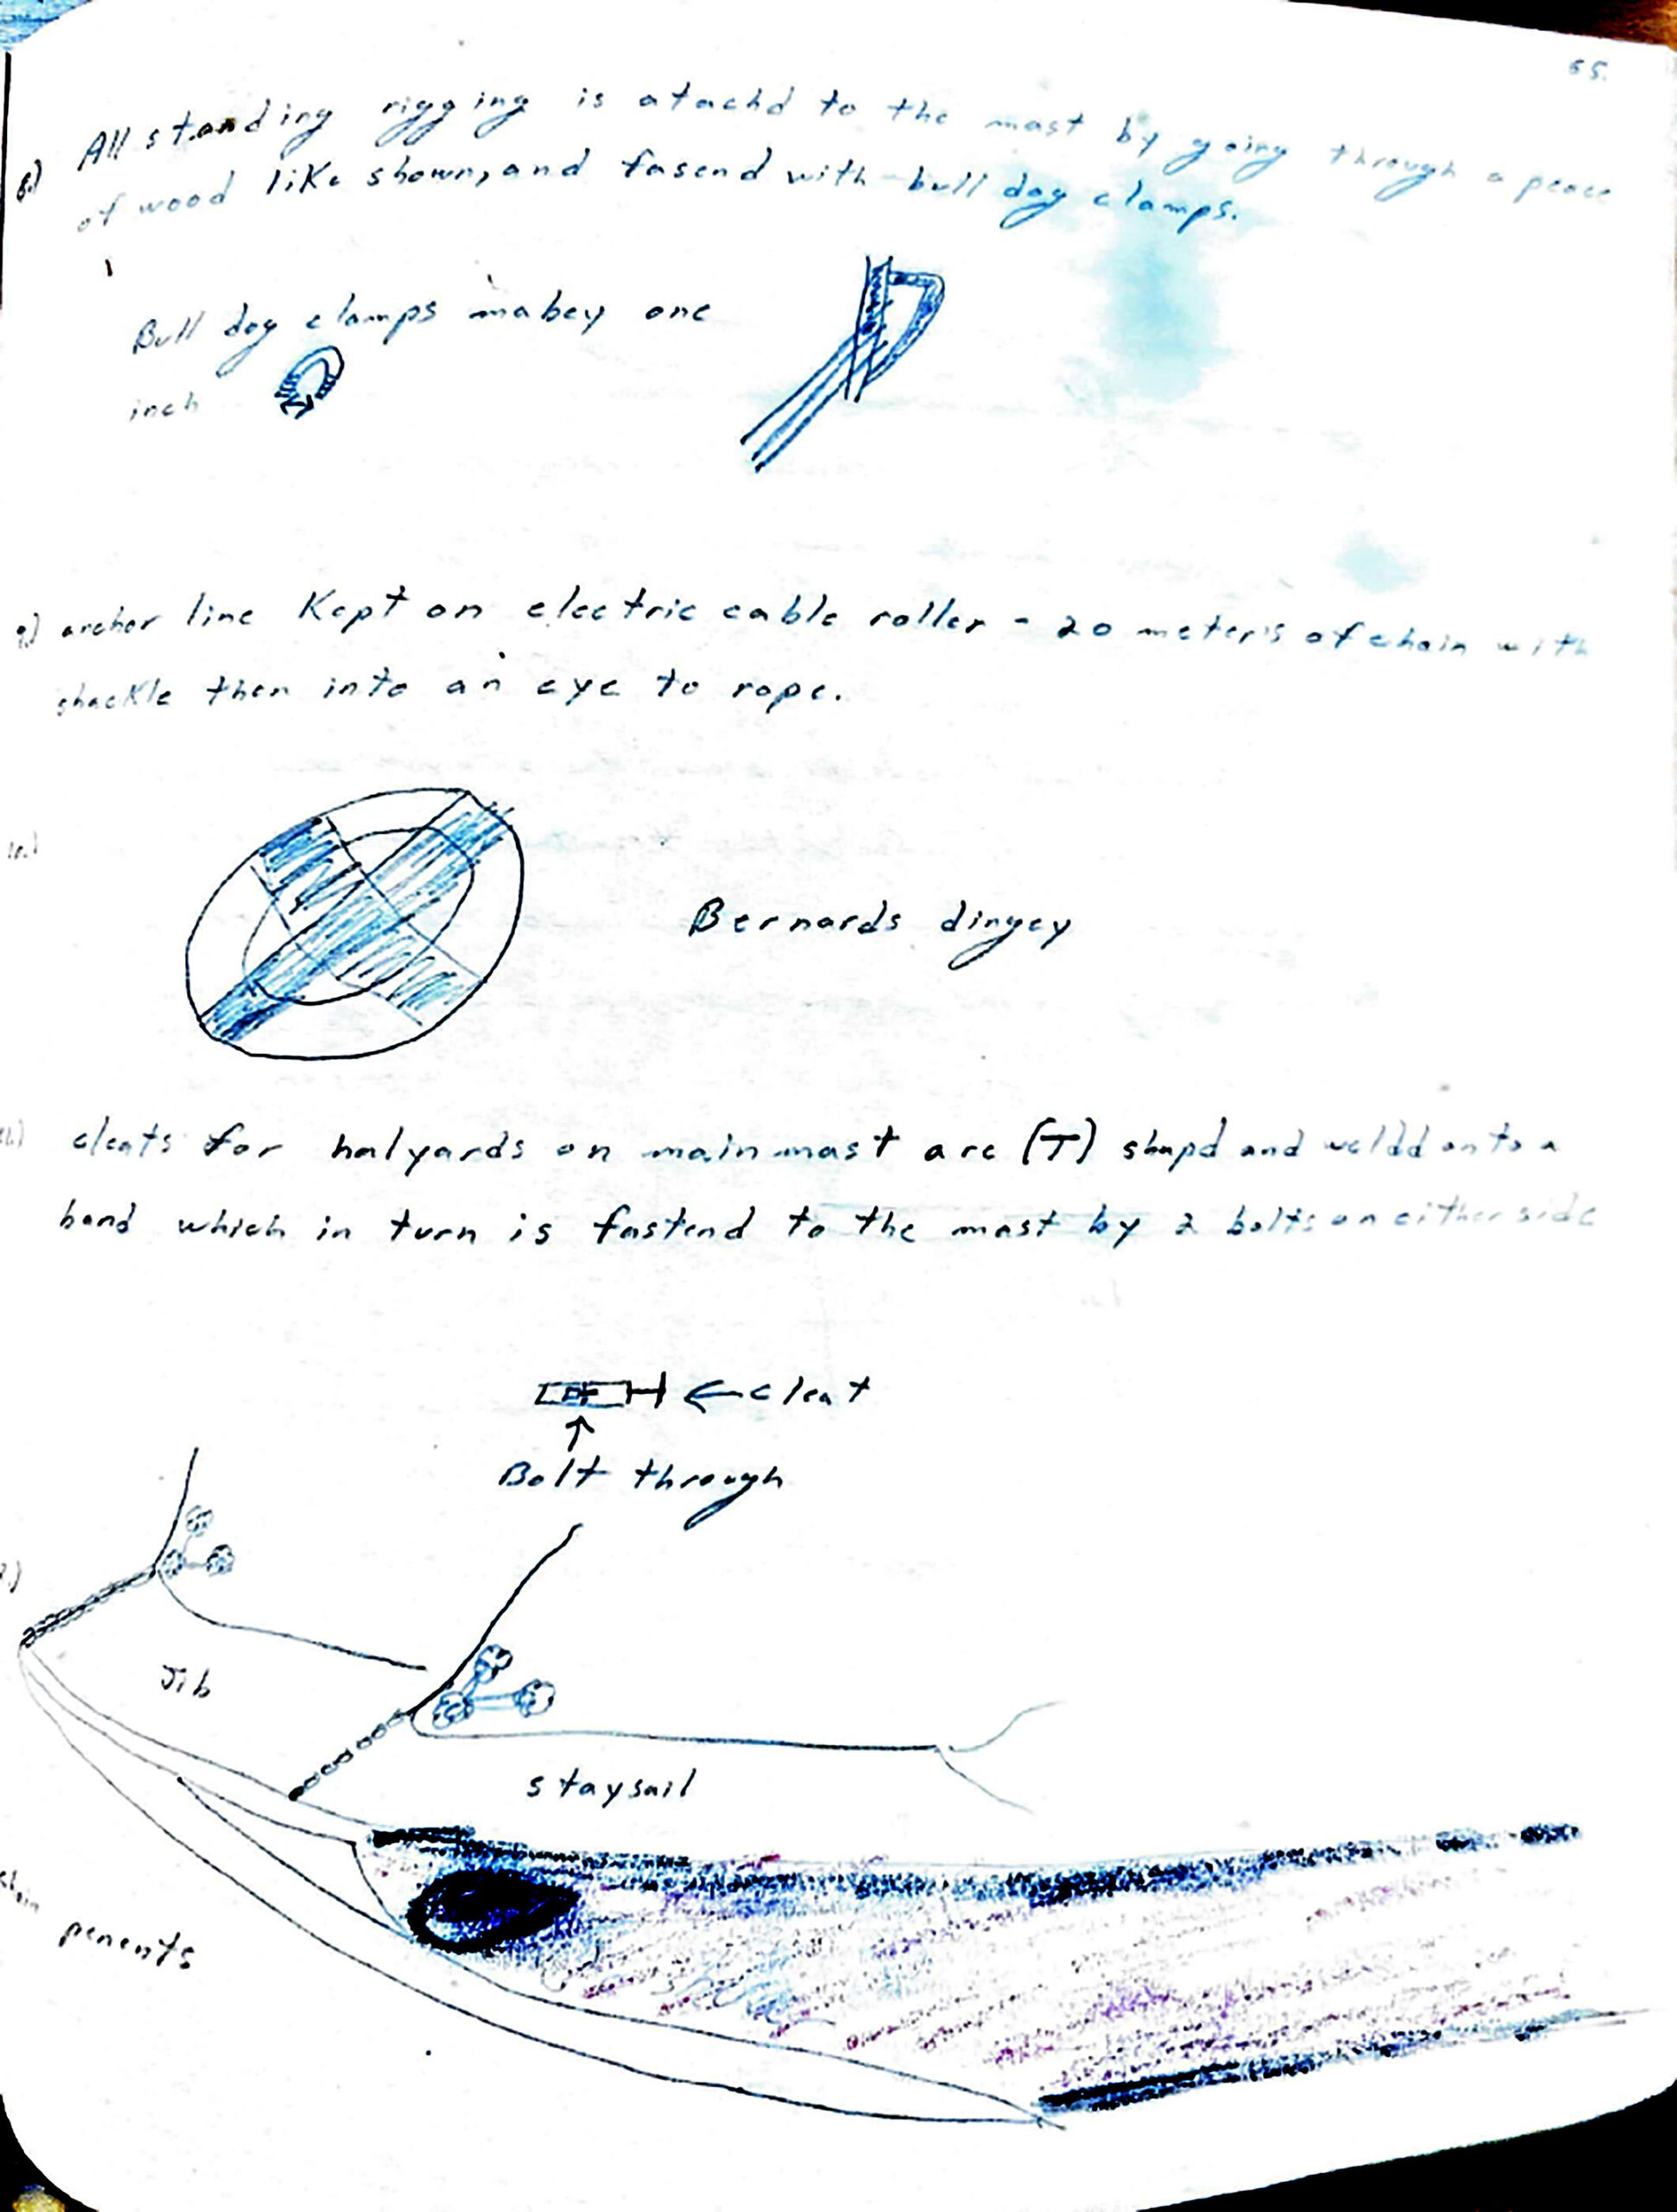 55.
8.) All standing rigging is atachd to the mast by going through a peace
of wood like shown, and fasend with bull dog clamps.
Bull dog clamps mabey one
inch
9.) archor line Kept on electric cable roller - 20 meter's of chain with
shackle then into an eye to rope.
10.)
Bernards dingey
11.) cleats for halyards on main mast are (T) shapd and weldd onto a
band which in turn is fastend to the mast by 2 bolts on either side
← cleat
↑
Bolt through
2.)
Jib
staysail
penents